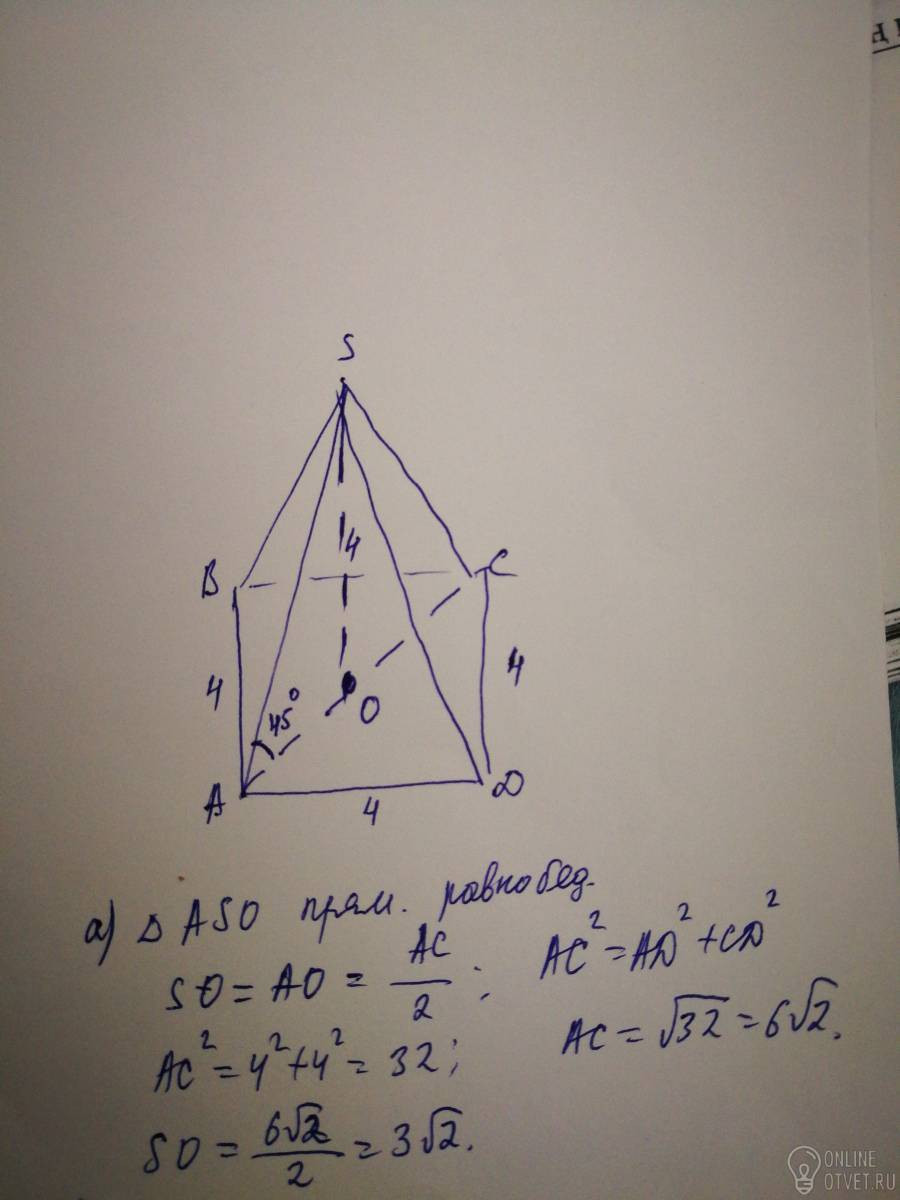 S
4
B
C
4
4
45°
O
A
D
4
а) Δ ASO прям. равнобед.
SO = AO = AC/2 ; AC² = AD² + CD²
AC² = 4² + 4² = 32 ; AC = √32 = 6√2.
SO = 6√2/2 = 3√2.
ONLINE
OTVET.RU